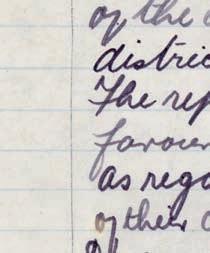 of the
distric
The rep
favour
as rega
of their